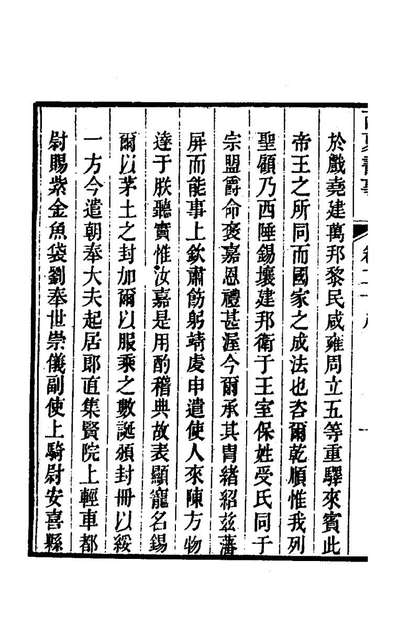 西夏書事
卷二十八
一
於戲堯建萬邦黎民咸雍周立五等重驛來賓此
帝王之所同而國家之成法也咨爾乾順惟我列
聖顧乃西陲錫壤建邦衛于王室保姓受氏同于
宗盟爵命褒嘉恩禮甚渥今爾承其胄緒紹茲藩
屏而能事上欽肅飭躬靖虔申遣使人來陳方物
達于朕聽實惟汝嘉是用酌稽典故表顯寵名錫
爾以茅土之封加爾以服乘之數誕頒封冊以綏
一方今遣朝奉大夫起居郎直集賢院上輕車都
尉賜紫金魚袋劉奉世崇儀副使上騎尉安喜縣